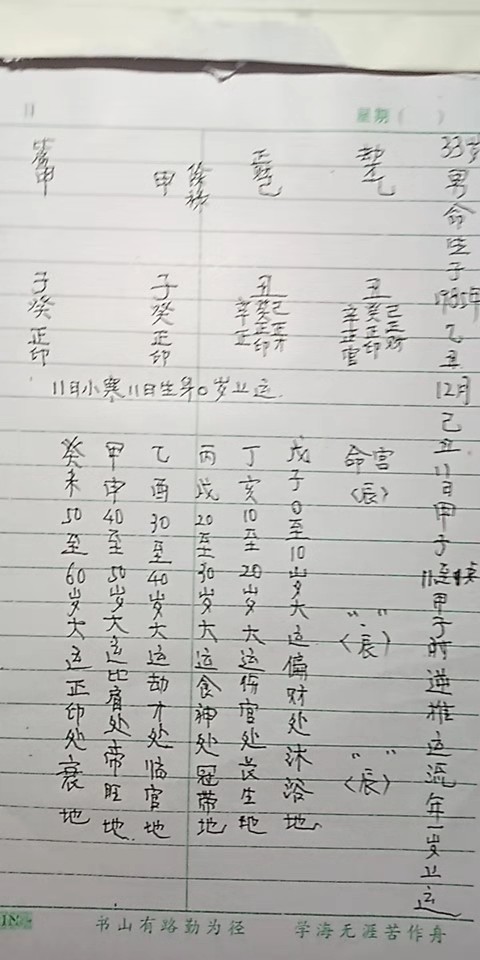 星期（ ）
33岁男命生于1985年乙丑12月己丑11日甲子11点甲子时逆推运流年一岁上运
劫才乙
丑
辛癸己
正正正
官印财
正财己
丑
辛癸己
甲
子
癸
正
印
甲
子
癸
正
印
11日小寒11日生年0岁上运
命宫
〈辰〉
〈辰〉
〈辰〉
戊子0至10岁大运偏财处沐浴地
丁亥10至20岁大运伤官处长生地
丙戌20至30岁大运食神处冠带地
乙酉30至40岁大运劫才处临官地
甲申40至50岁大运比肩处帝旺地
癸未50至60岁大运正印处衰地
书山有路勤为径 学海无涯苦作舟